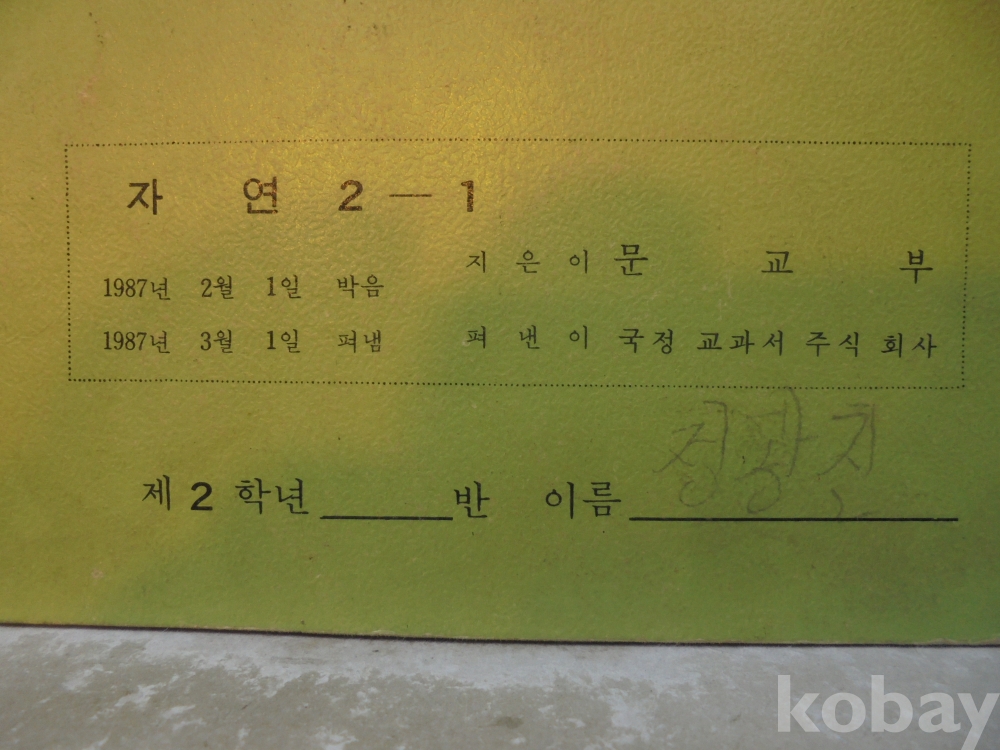 자 연 2 — 1
지 은 이 문 교 부
1987년 2월 1일 박음
1987년 3월 1일 펴냄 펴 낸 이 국정 교과서 주식 회사
제 2 학년 반 이름
kobay